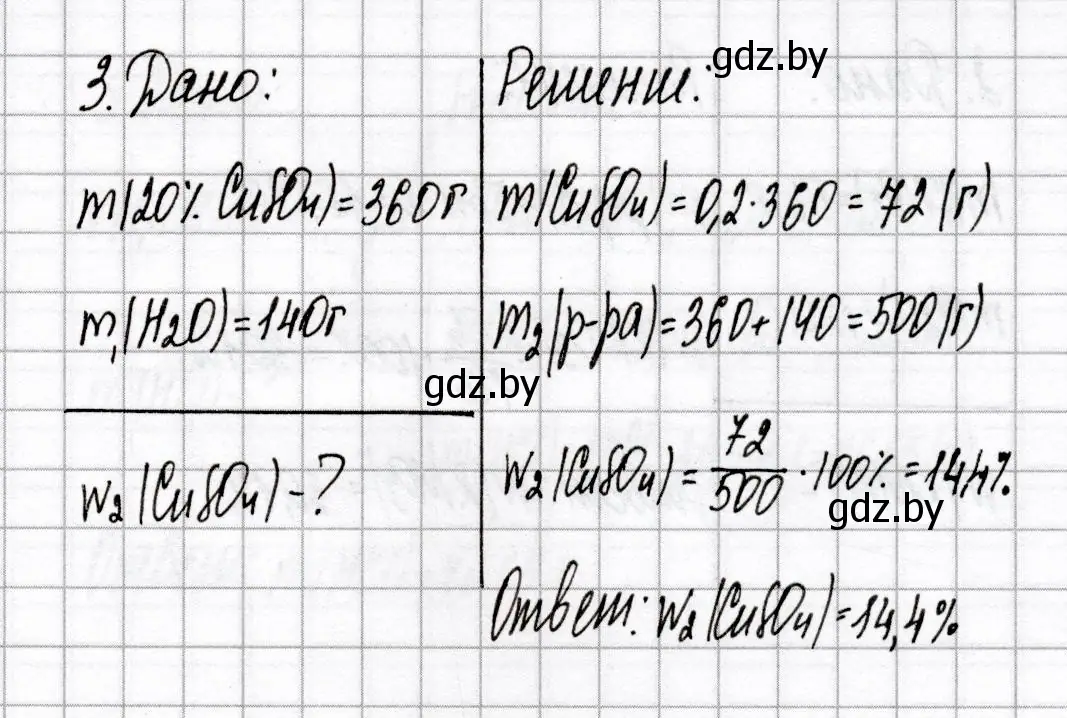 3. Дано:
m(20% CuSO4) = 360г
m1(H2O) = 140г
w2(CuSO4) - ?
Решение:
gdz.by
m(CuSO4) = 0,2·360 = 72 (г)
m2(р-ра) = 360 + 140 = 500 (г)
gdz.by
w2(CuSO4) = 72/500 · 100% = 14,4%
gdz.by
Ответ: w2(CuSO4) = 14,4%